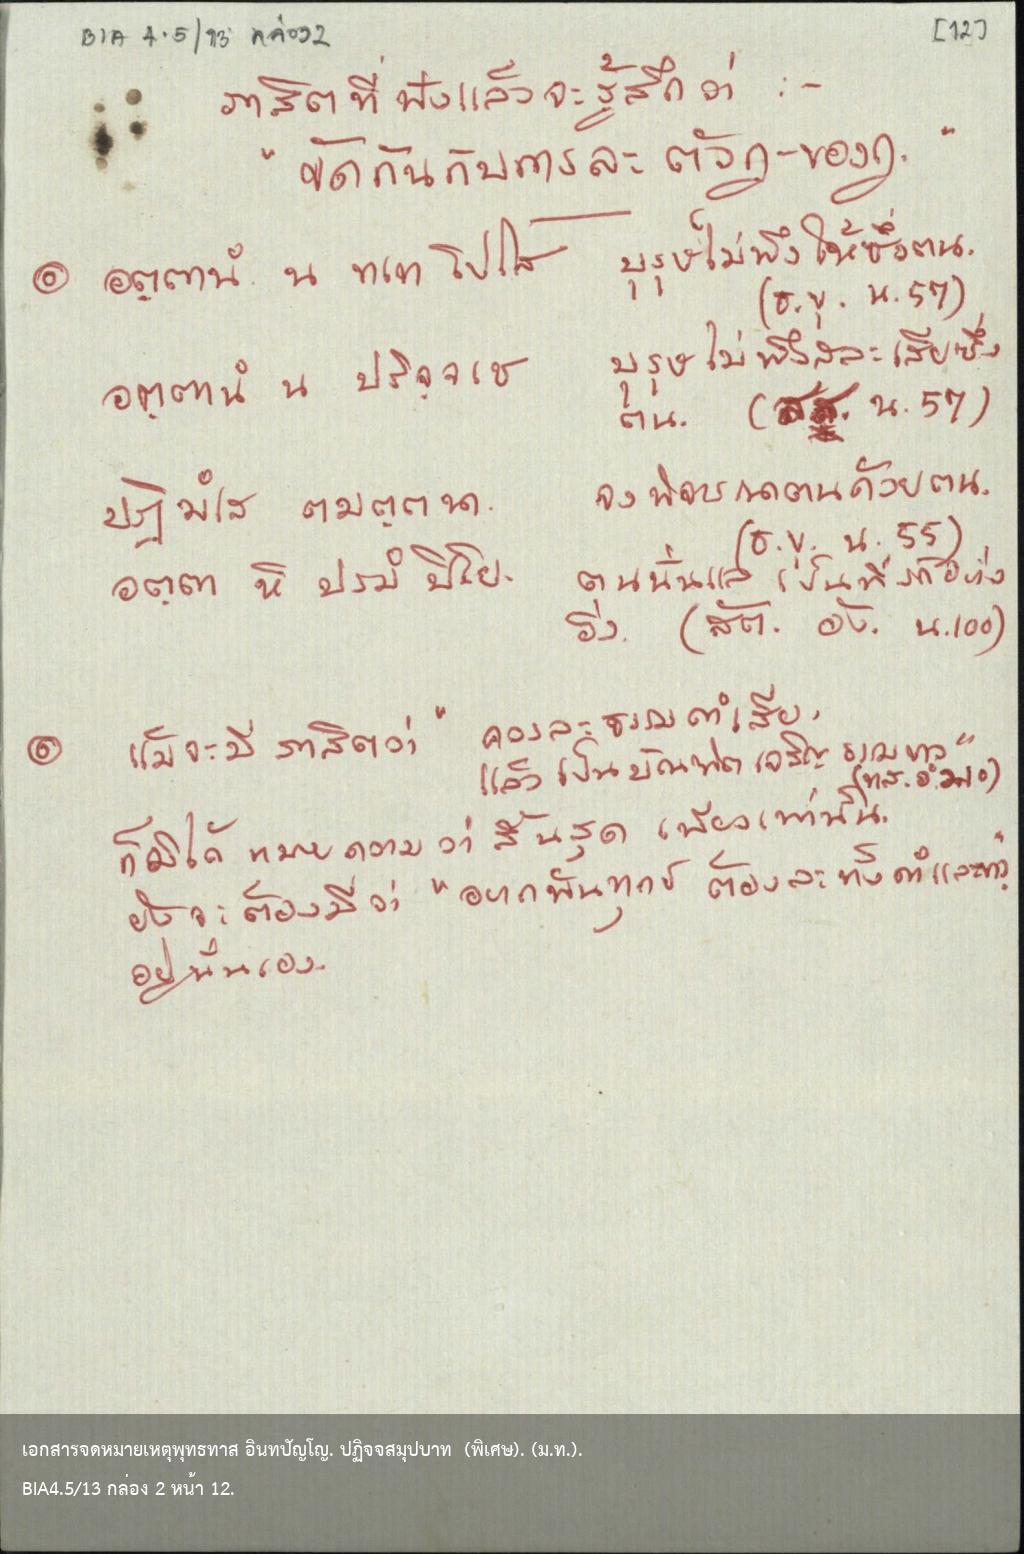 BIA 4.5/13 กล่อง2 [12]
ภาสิตที่ฟังแล้วจะรู้สึกว่า :-
" ขัดกันกับการละ ตัวกู-ของกู. "
๏ อตฺตานํ น ทเท โปโส บุรุษไม่พึงให้ซึ่งตน.
(ธ.ขุ. น.57)
อตฺตานํ น ปริจฺจเช บุรุษไม่พึงสละเสียซึ่ง
ตน. ( น.57)
ปฏิมํเส ตมตฺตนา. จงพิจารณาตนด้วยตน.
(ธ.ขุ. น. 55)
อตฺตา หิ ปรมํ ปิโย. ตนนั่นแล เป็นที่รักอย่าง
ยิ่ง. (สัต. อัง. น.100)
๏ แม้จะมี ภาสิตว่า " ควรละธรรมดำเสีย,
แล้วเป็นบัณฑิตเจริญธรรมขาว"
ก็มิได้ หมายความว่า สิ้นสุด เพียงเท่านั้น.
ยังจะต้องมีว่า "อยากพ้นทุกข์ ต้องละทั้งดำและขาว"
อยู่นั่นเอง.
เอกสารจดหมายเหตุพุทธทาส อินทปัญโญ. ปฏิจจสมุปบาท (พิเศษ). (ม.ท.).
BIA4.5/13 กล่อง 2 หน้า 12.